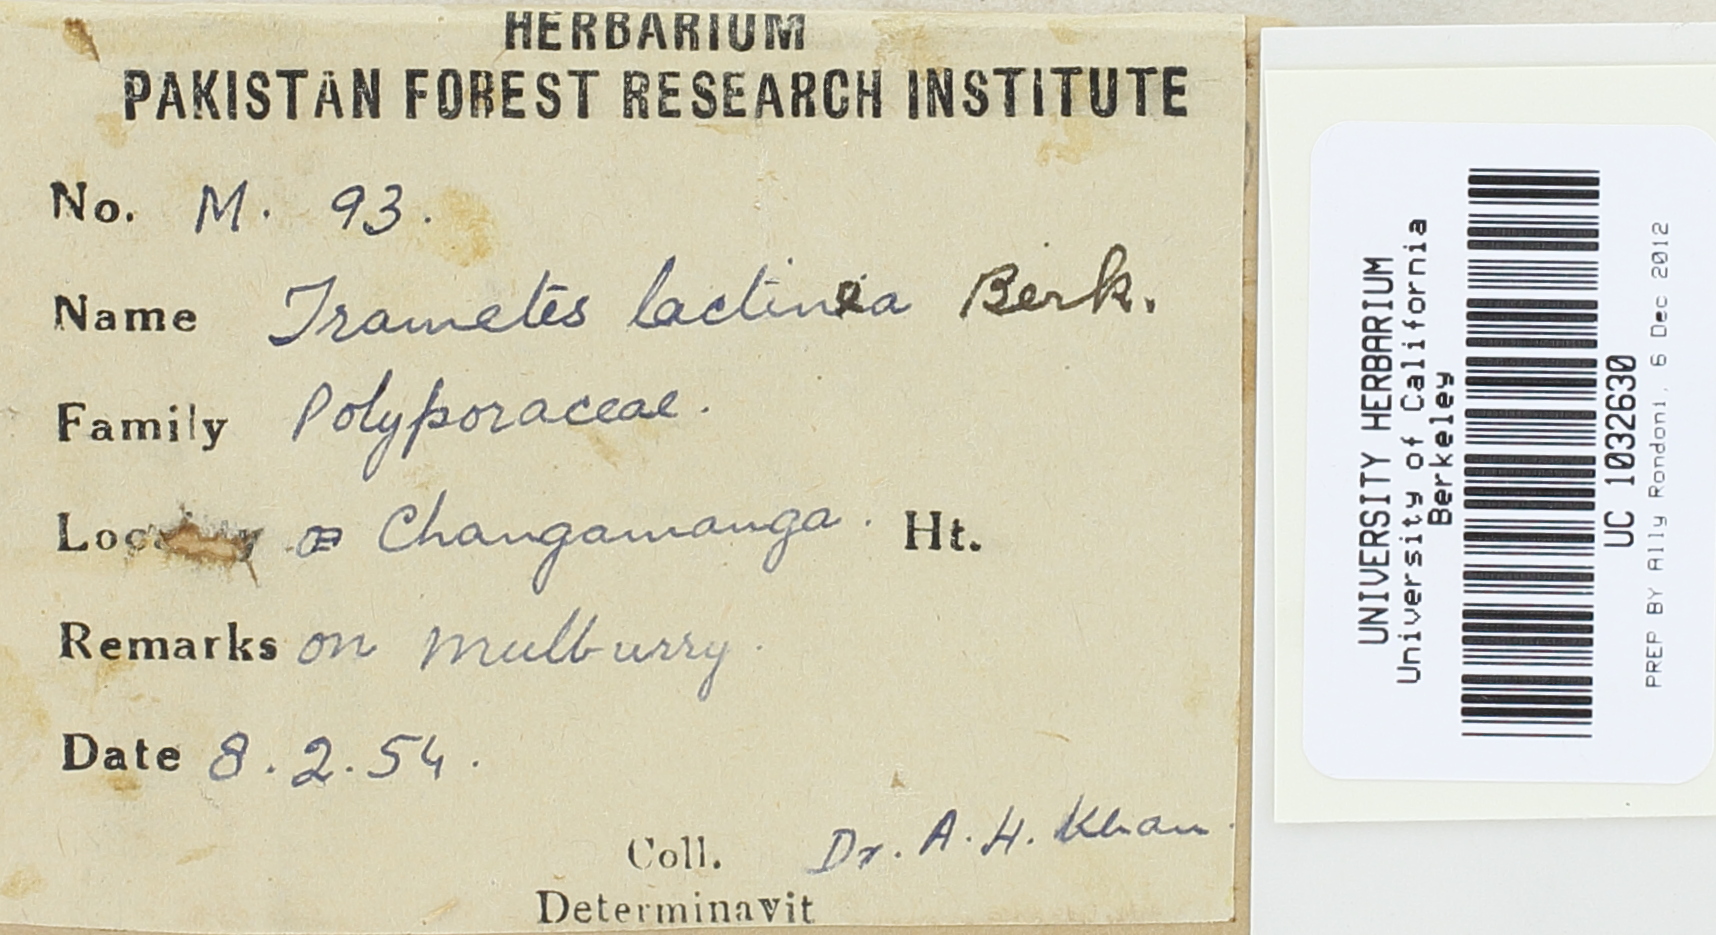 HERBARIUM
PAKISTAN FOREST RESEARCH INSTITUTE
No. M. 93.
Name Trametes lactinea Berk.
Family Polyporaceae.
Changamanga. Ht.
Remarks on mulburry.
Date 8.2.54.
Coll. Dr. A. H. Khan.
Determinavit
UNIVERSITY HERBARIUM
University of California
Berkeley
UC 1032630
PREP BY Ally Rondoni, 6 Dec 2012